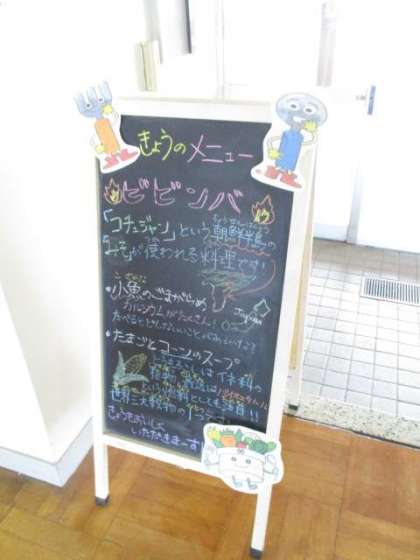 きょうのメニュー
ビビンバ
「コチュジャン」という朝鮮半島の
みそが使われる料理です!
・小魚のごまがらめ
カルシウムがたくさん!
・たまごとコーンのスープ
とうもろこしはイネ科の
植物
燃料としても注目!!
世界三大穀物の1つ
きょうもおいしく
いただきまーす!